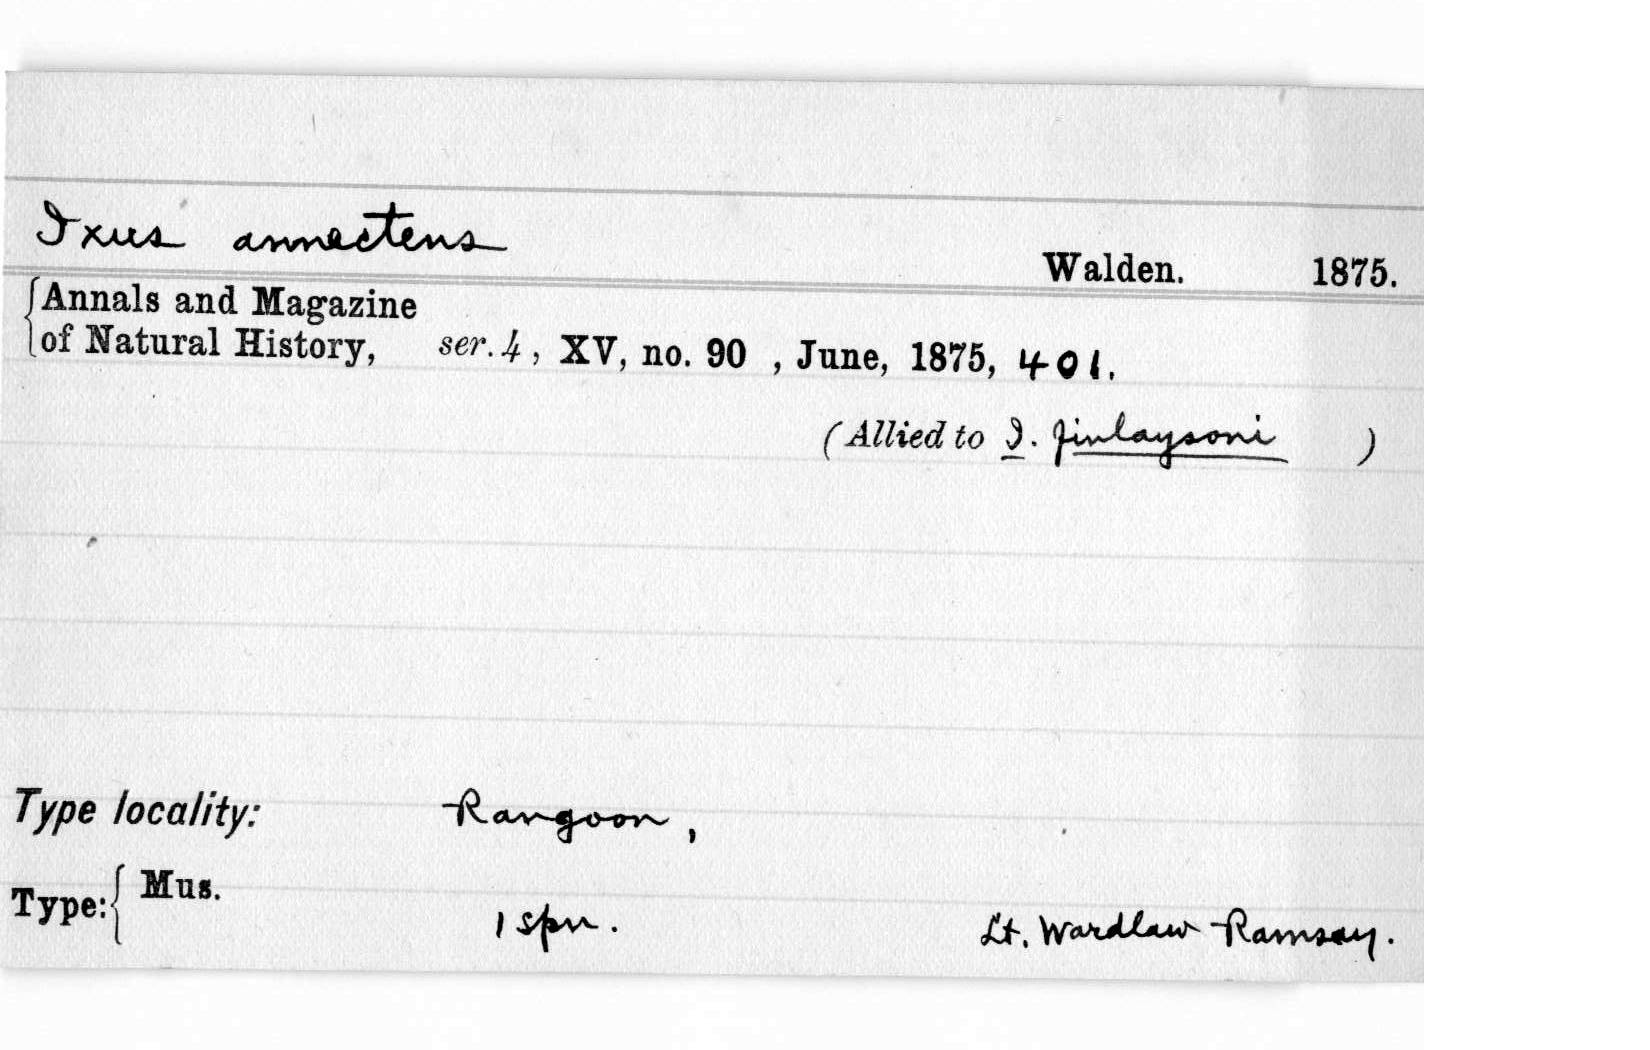 Ixus annectens Walden. 1875.
Annals and Magazine
of Natural History, ser. 4, XV, no. 90, June, 1875, 401.
(Allied to I. finlaysoni )
Type locality: Rangoon,
Type: Mus.
1 spn. Lt. Wardlaw-Ramsay.